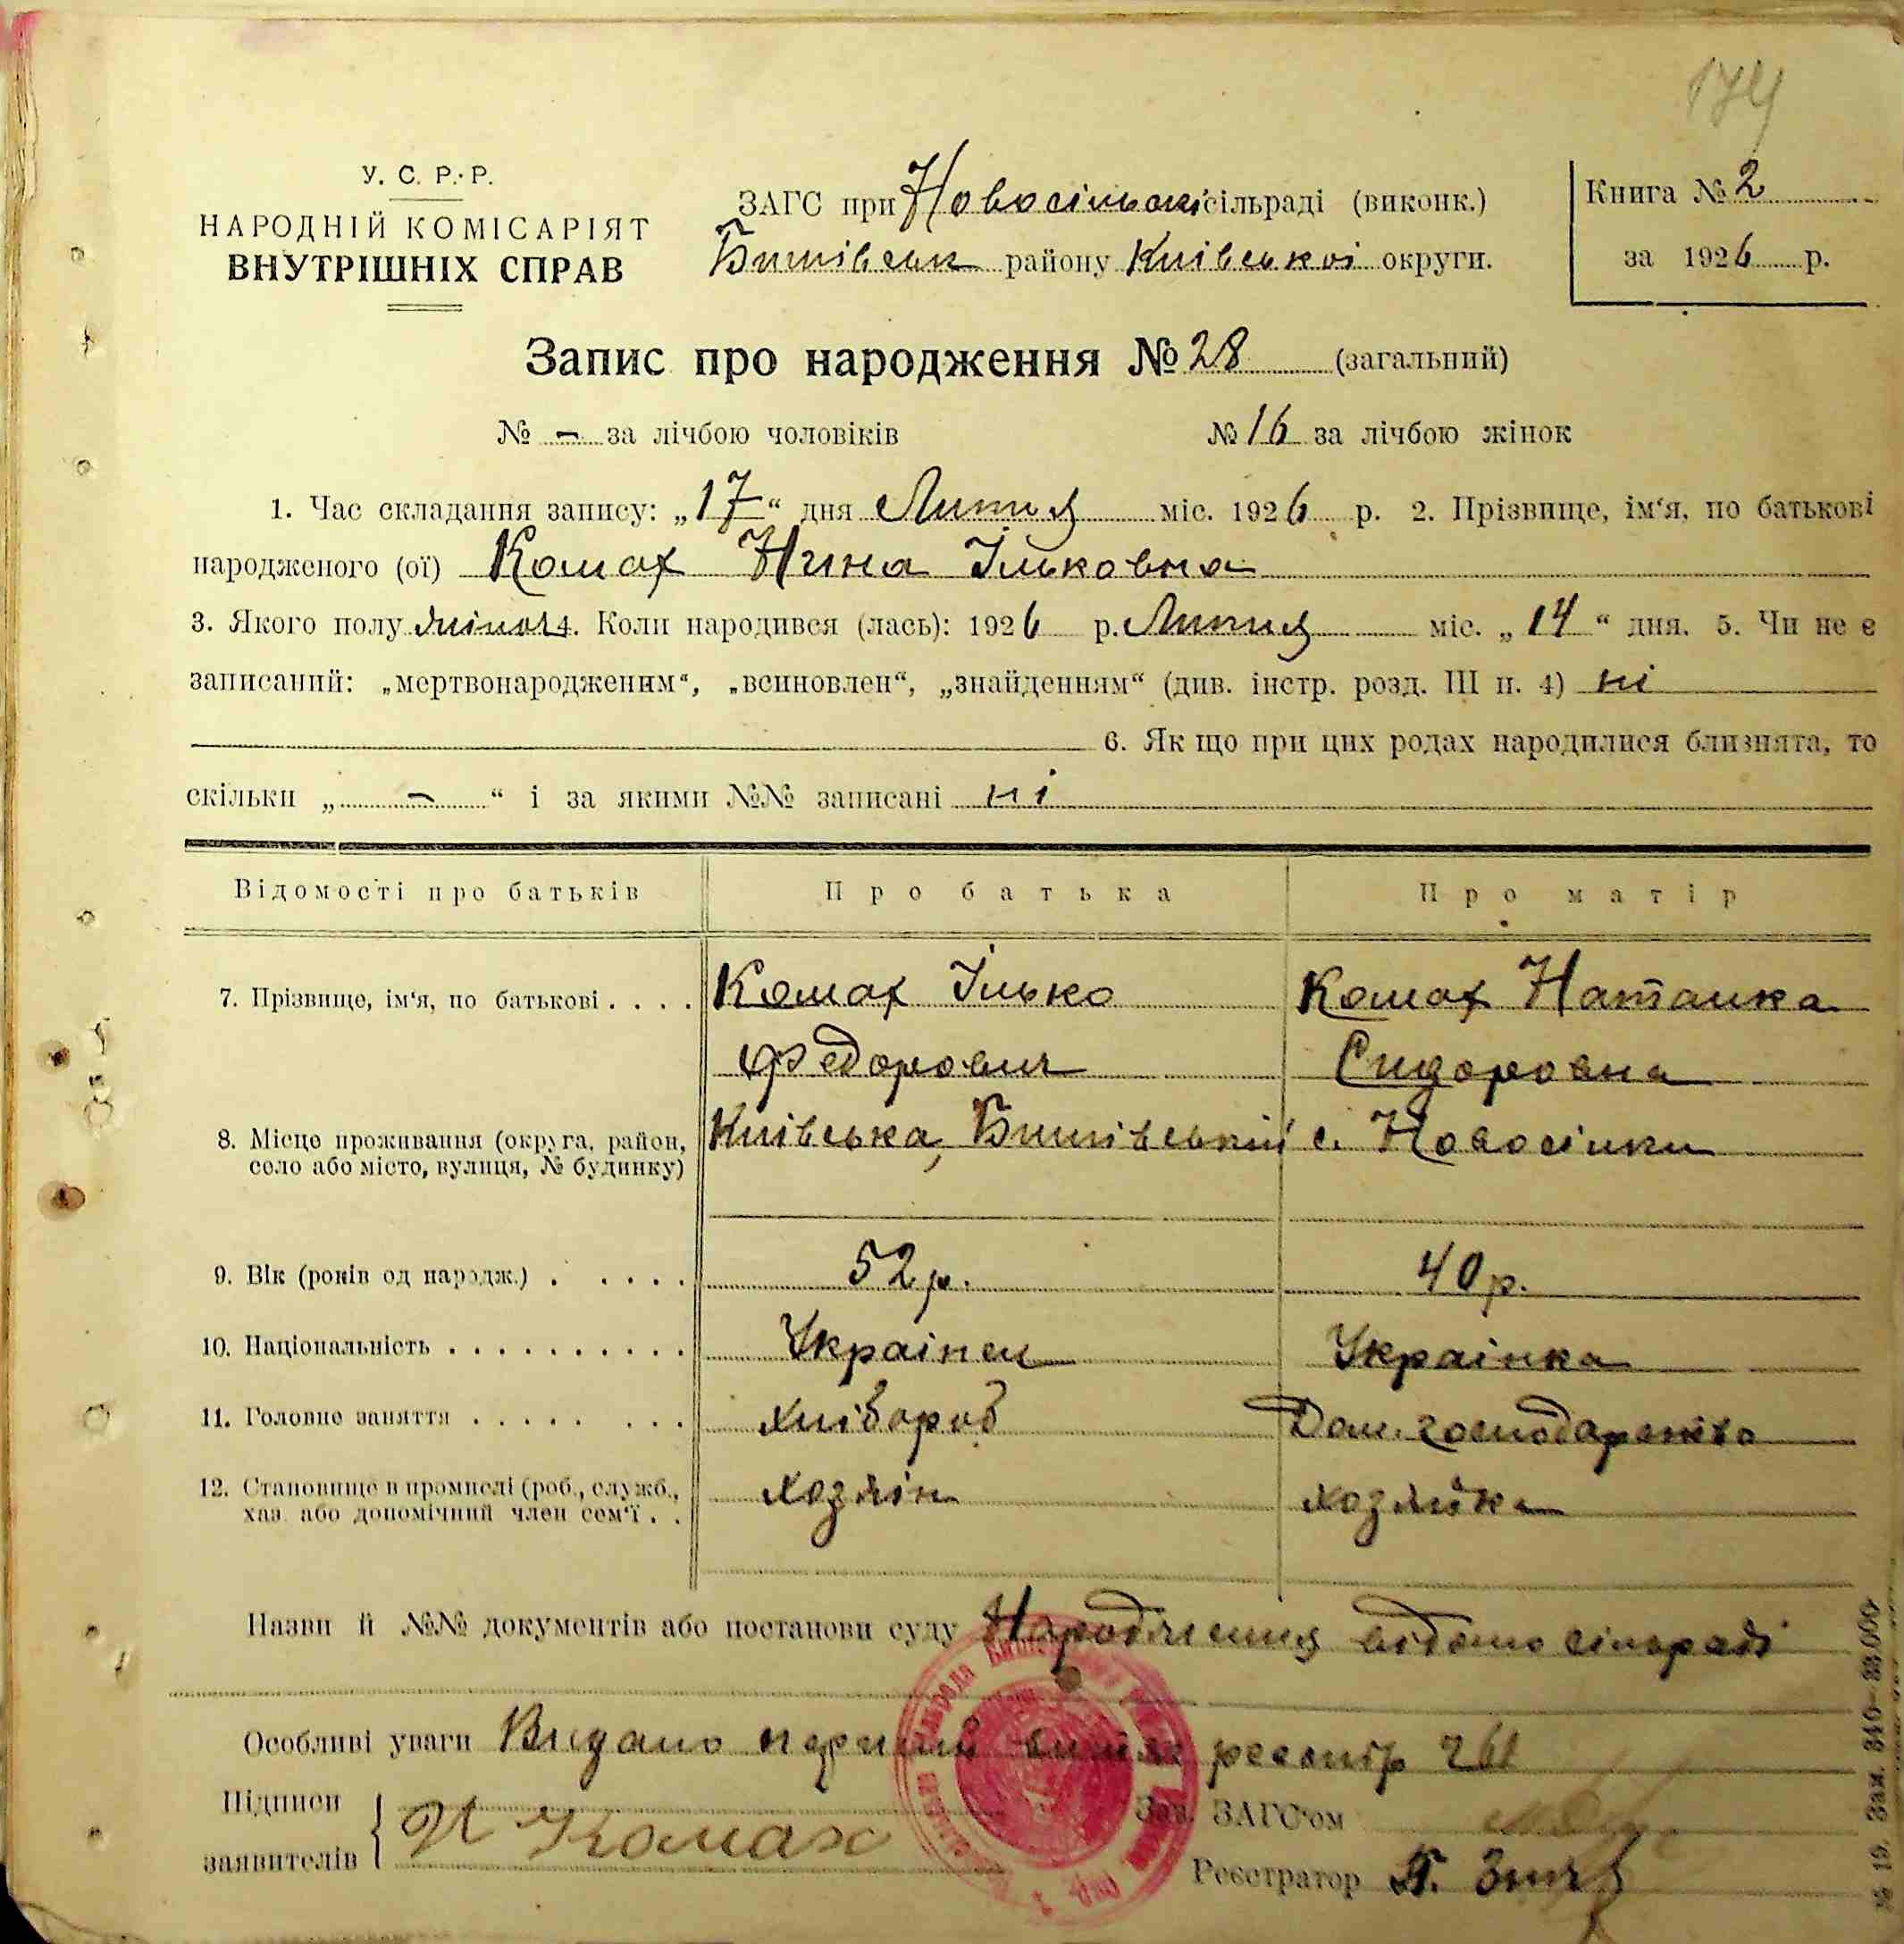 174
У. С. Р. Р.
НАРОДНІЙ КОМІСАРІЯТ
ВНУТРІШНІХ СПРАВ
ЗАГС при Новосільській сільраді (виконк.)
Бишівськ району Київської округи.
Книга № 2
за 1926 р.
Запис про народження № 28 (загальний)
№ – за лічбою чоловіків № 16 за лічбою жінок
1. Час складання запису: „17“ дня Липня міс. 1926 р. 2. Прізвище, ім‘я, по батькові
народженого (ої) Комах Нина Ільковна
3. Якого полу жіноч 4. Коли народився (лась): 1926 р. Липня міс. „14“ дня. 5. Чи не є
записаний: „мертвонародженим“, „всиновлен“, „знайденням“ (див. інстр. розд. III п. 4) ні
6. Як що при цих родах народилися близнята, то
скільки „ – “ і за якими №№ записані ні
Відомості про батьків Про батька Про матір
7. Прізвище, ім‘я, по батькові . . . . Комах Ілько Комах Наталка
Федорович Сидоровна
8. Місце проживання (округа, район, село або місто, вулиця, № будинку) Київська, Бишівський с. Новосілки
9. Вік (років од народж.) . . . . . 52 р. 40 р.
10. Національність . . . . . . . . . . Українец Українка
11. Головне заняття . . . . . . . . Хлібороб Дом. господарство
12. Становище в промислі (роб., служб., хаз. або допомічний член сем‘ї . . хозяїн хозяйка
Назви й №№ документів або постанови суду Народження відомо сільраді
Особливі уваги Видано перший реєстр
Підписи
заявителів
И Комах
Зав. ЗАГС‘ом
Реєстратор
№ 19. Зам. 340—33.000